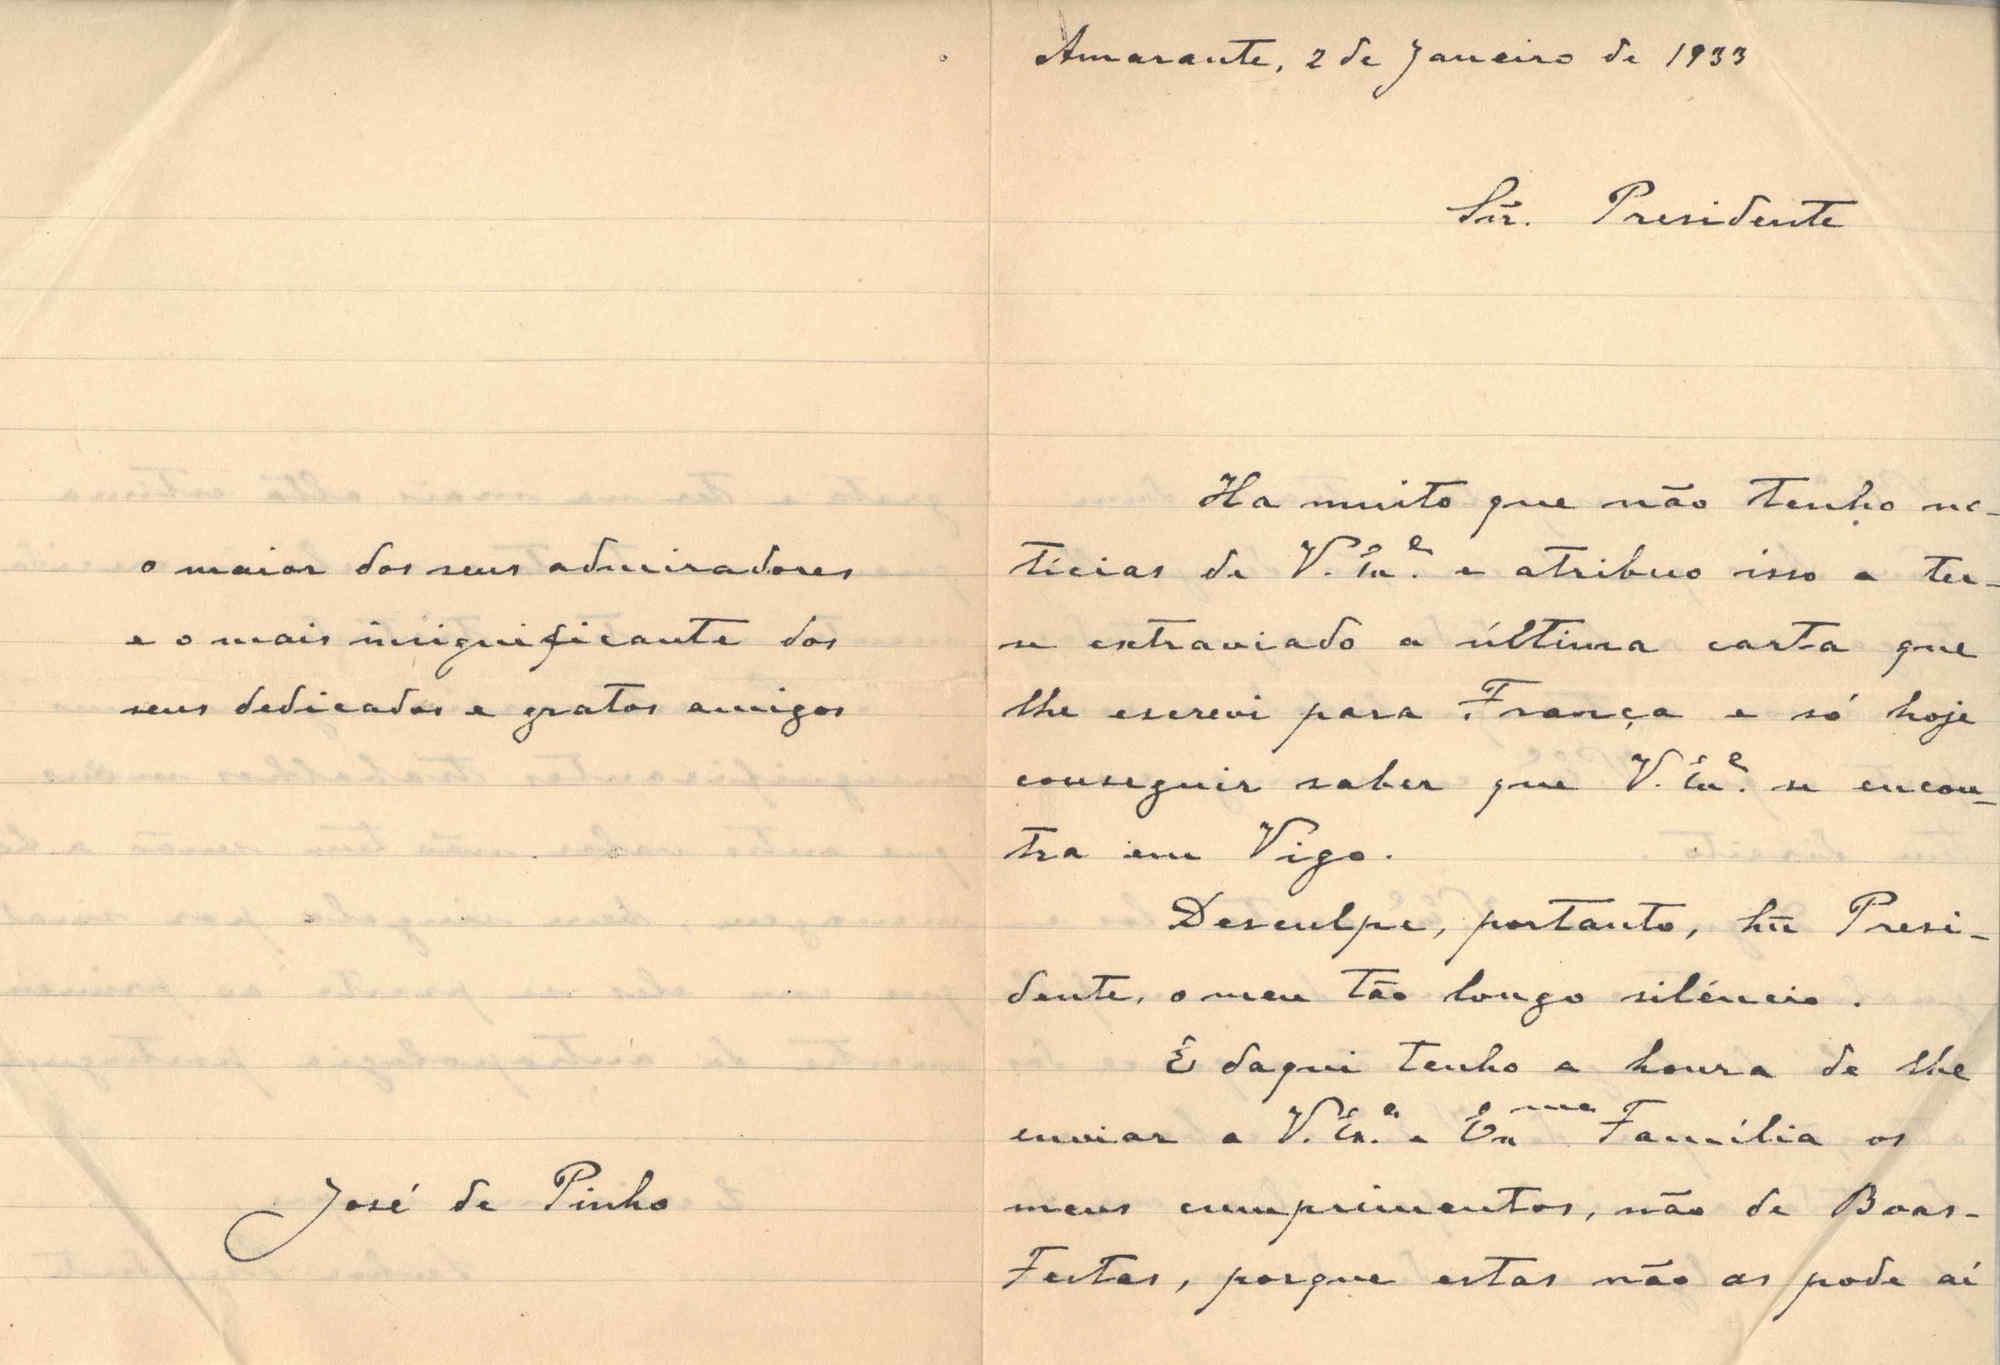 Amarante, 2 de Janeiro de 1933
Snr. Presidente
Ha muito que não tenho no-
tícias de V. Ex.ª e atribuo isso a ter-
se extraviado a última carta que
lhe escrevi para França e só hoje
conseguir saber que V. Ex.ª se encon-
tra em Vigo.
Desculpe, portanto, Snr Presi-
dente, o meu tão longo silêncio.
E daqui tenho a honra de lhe
enviar a V. Ex.ª e Ex.ma Família os
meus cumprimentos, não de Boas-
Festas, porque estas não as pode aí
o maior dos seus admiradores
e o mais insignificante dos
seus dedicados e gratos amigos
José de Pinho